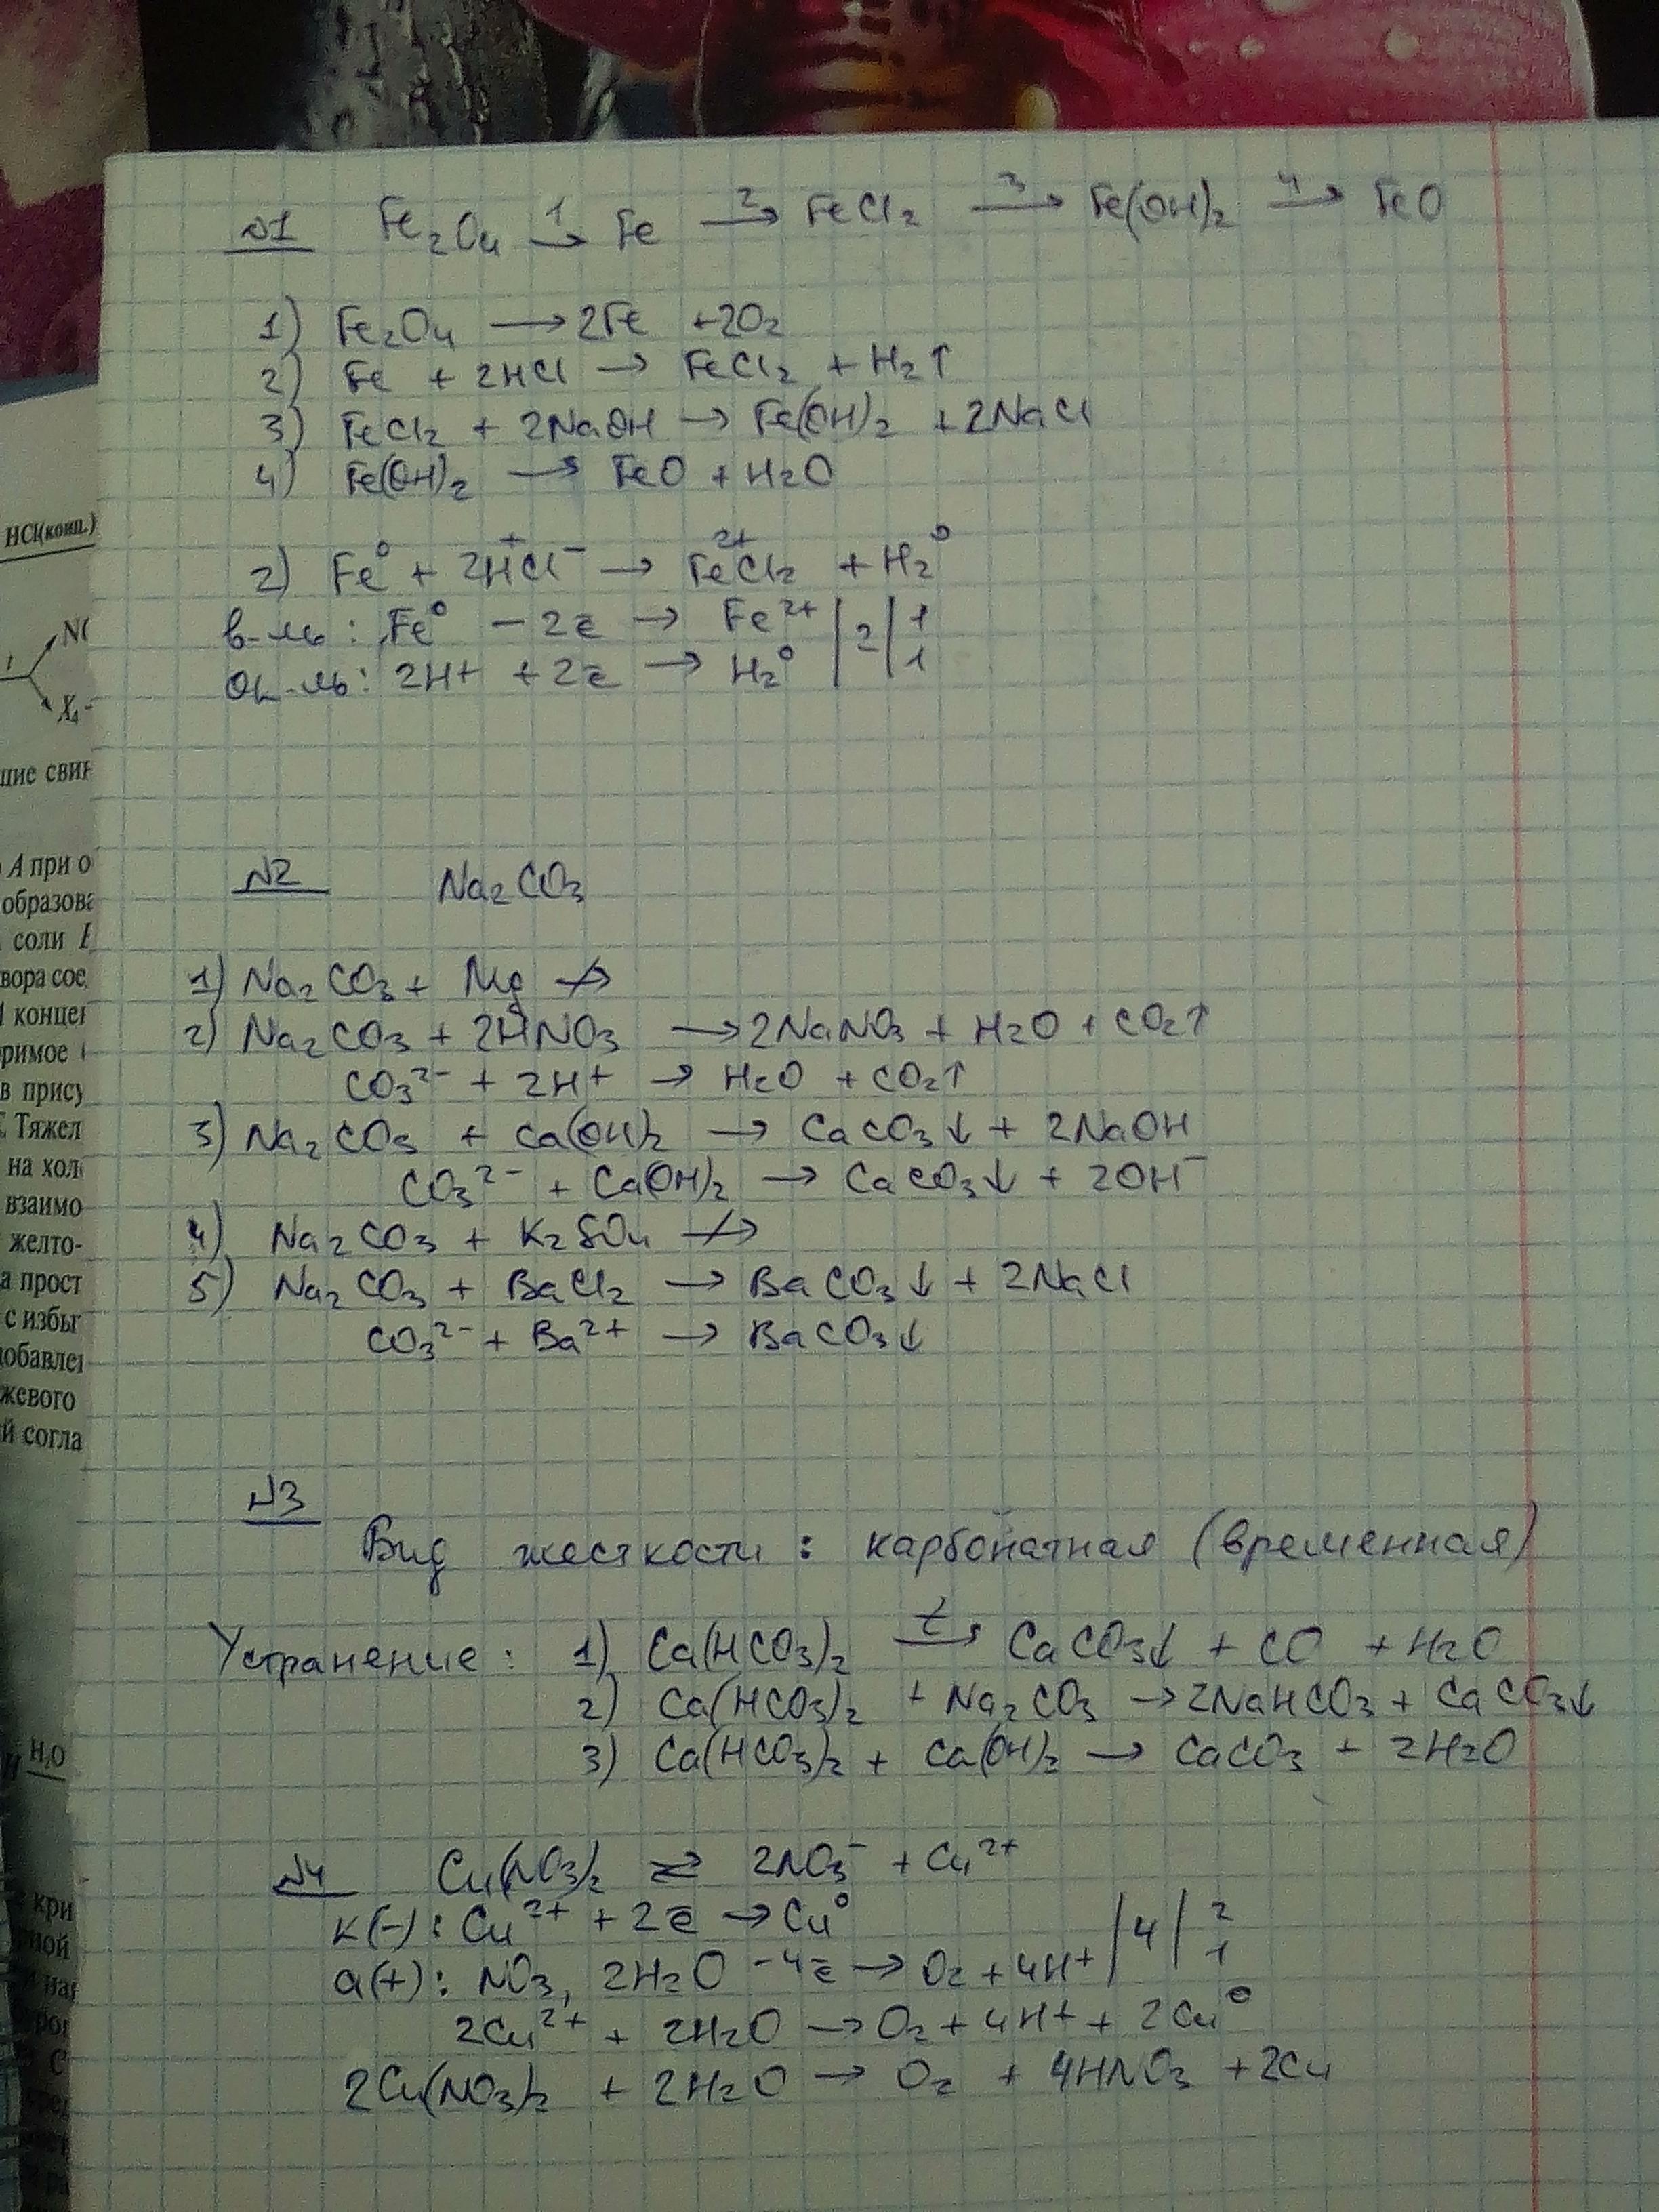 №1 Fe₂O₄ →¹ Fe →² FeCl₂ →³ Fe(OH)₂ →⁴ FeO
1) Fe₂O₄ → 2Fe + 2O₂
2) Fe + 2HCl → FeCl₂ + H₂↑
3) FeCl₂ + 2NaOH → Fe(OH)₂ + 2NaCl
4) Fe(OH)₂ → FeO + H₂O
2) Fe⁰ + 2H⁺Cl⁻ → Fe²⁺Cl₂ + H₂⁰
в-ль: Fe⁰ - 2ē → Fe²⁺ | 2 | 1
ок-ль: 2H+ + 2ē → H₂⁰ | | 1
№2 Na₂CO₃
1) Na₂CO₃ + Mg ↛
2) Na₂CO₃ + 2HNO₃ → 2NaNO₃ + H₂O + CO₂↑
CO₃²⁻ + 2H⁺ → H₂O + CO₂↑
3) Na₂CO₃ + Ca(OH)₂ → CaCO₃↓ + 2NaOH
CO₃²⁻ + Ca(OH)₂ → CaCO₃↓ + 2OH⁻
4) Na₂CO₃ + K₂SO₄ ↛
5) Na₂CO₃ + BaCl₂ → BaCO₃↓ + 2NaCl
CO₃²⁻ + Ba²⁺ → BaCO₃↓
№3
Вид жесткости: карбонатная (временная)
Устранение: 1) Ca(HCO₃)₂ →ᵗ CaCO₃↓ + CO + H₂O
2) Ca(HCO₃)₂ + Na₂CO₃ → 2NaHCO₃ + CaCO₃↓
3) Ca(HCO₃)₂ + Ca(OH)₂ → CaCO₃ + 2H₂O
№4 Cu(NO₃)₂ ⇄ 2NO₃⁻ + Cu²⁺
к(-): Cu²⁺ + 2ē → Cu⁰ | 4 | 2
а(+): NO₃, 2H₂O - 4ē → O₂ + 4H⁺ | | 1
2Cu²⁺ + 2H₂O → O₂ + 4H+ + 2Cu⁰
2Cu(NO₃)₂ + 2H₂O → O₂ + 4HNO₃ + 2Cu
HCl(конц.)
X₄
A при о
соли
в прису
Тяжел
на хол
взаимо
желто-
а прост
с избы
жевого
й согла
H₂O